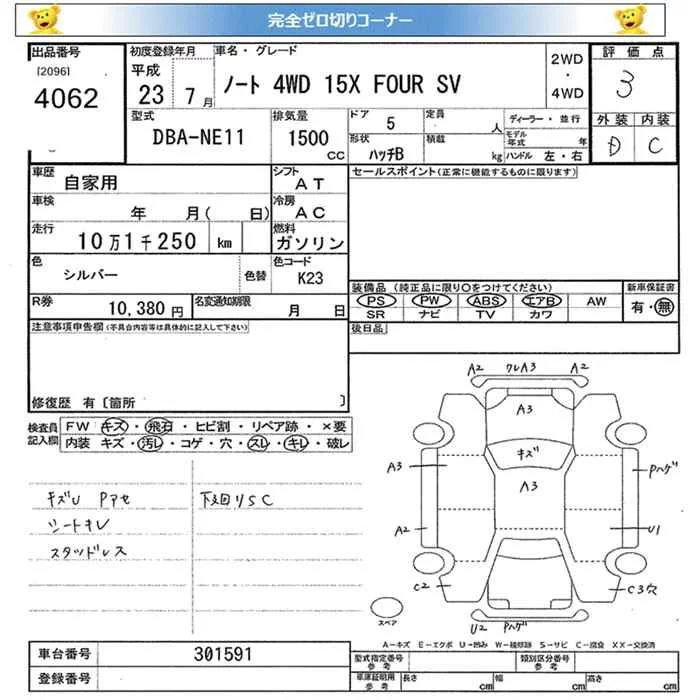 完全ゼロ切りコーナー
出品番号 初度登録年月 車名・グレード 評価点
[2096] 平成 2WD
4062 23 7月 ノート 4WD 15X FOUR SV ・ 3
4WD
型式 排気量 ドア 5 定員 人 ディーラー・並行 外装 内装
DBA-NE11 1500 CC 形状 ハッチB 積載 kg モデル年式 年 D C
ハンドル 左・右
車歴 自家用 シフト AT セールスポイント(正常に機能するものに限ります)
車検 年 月( 日) 冷房 AC
走行 10万1千250 km 燃料 ガソリン
色 シルバー 色替 色コード K23
装備品 (純正品に限り〇をつけてください) 新車保証書
PS PW ABS エアB AW 有・無
R券 10,380円 名変通知期限 月 日 SR ナビ TV カワ
注意事項申告欄(不具合内容等は具体的に記入して下さい) 後日品
修復歴 有〔箇所 〕
検査員記入欄 FW キズ・飛石・ヒビ割・リペア跡・×要
内装 キズ・汚レ・コゲ・穴・スレ・キレ・破レ
A2 クレA3 A2
A3
キズ
A3 A3 Pハゲ
A2 U1
C2 C3穴
U2 Pハゲ
スペア
キズU Pアセ 下廻りSC
シートキレ
スタッドレス
A-キズ E-エクボ U-凹み W-補修跡 S-サビ C-腐食 XX-交換済
車台番号 301591 型式指定番号 参考 類別区分番号 参考
登録番号 車庫証明用 参考 長さ cm 幅 cm 高さ cm